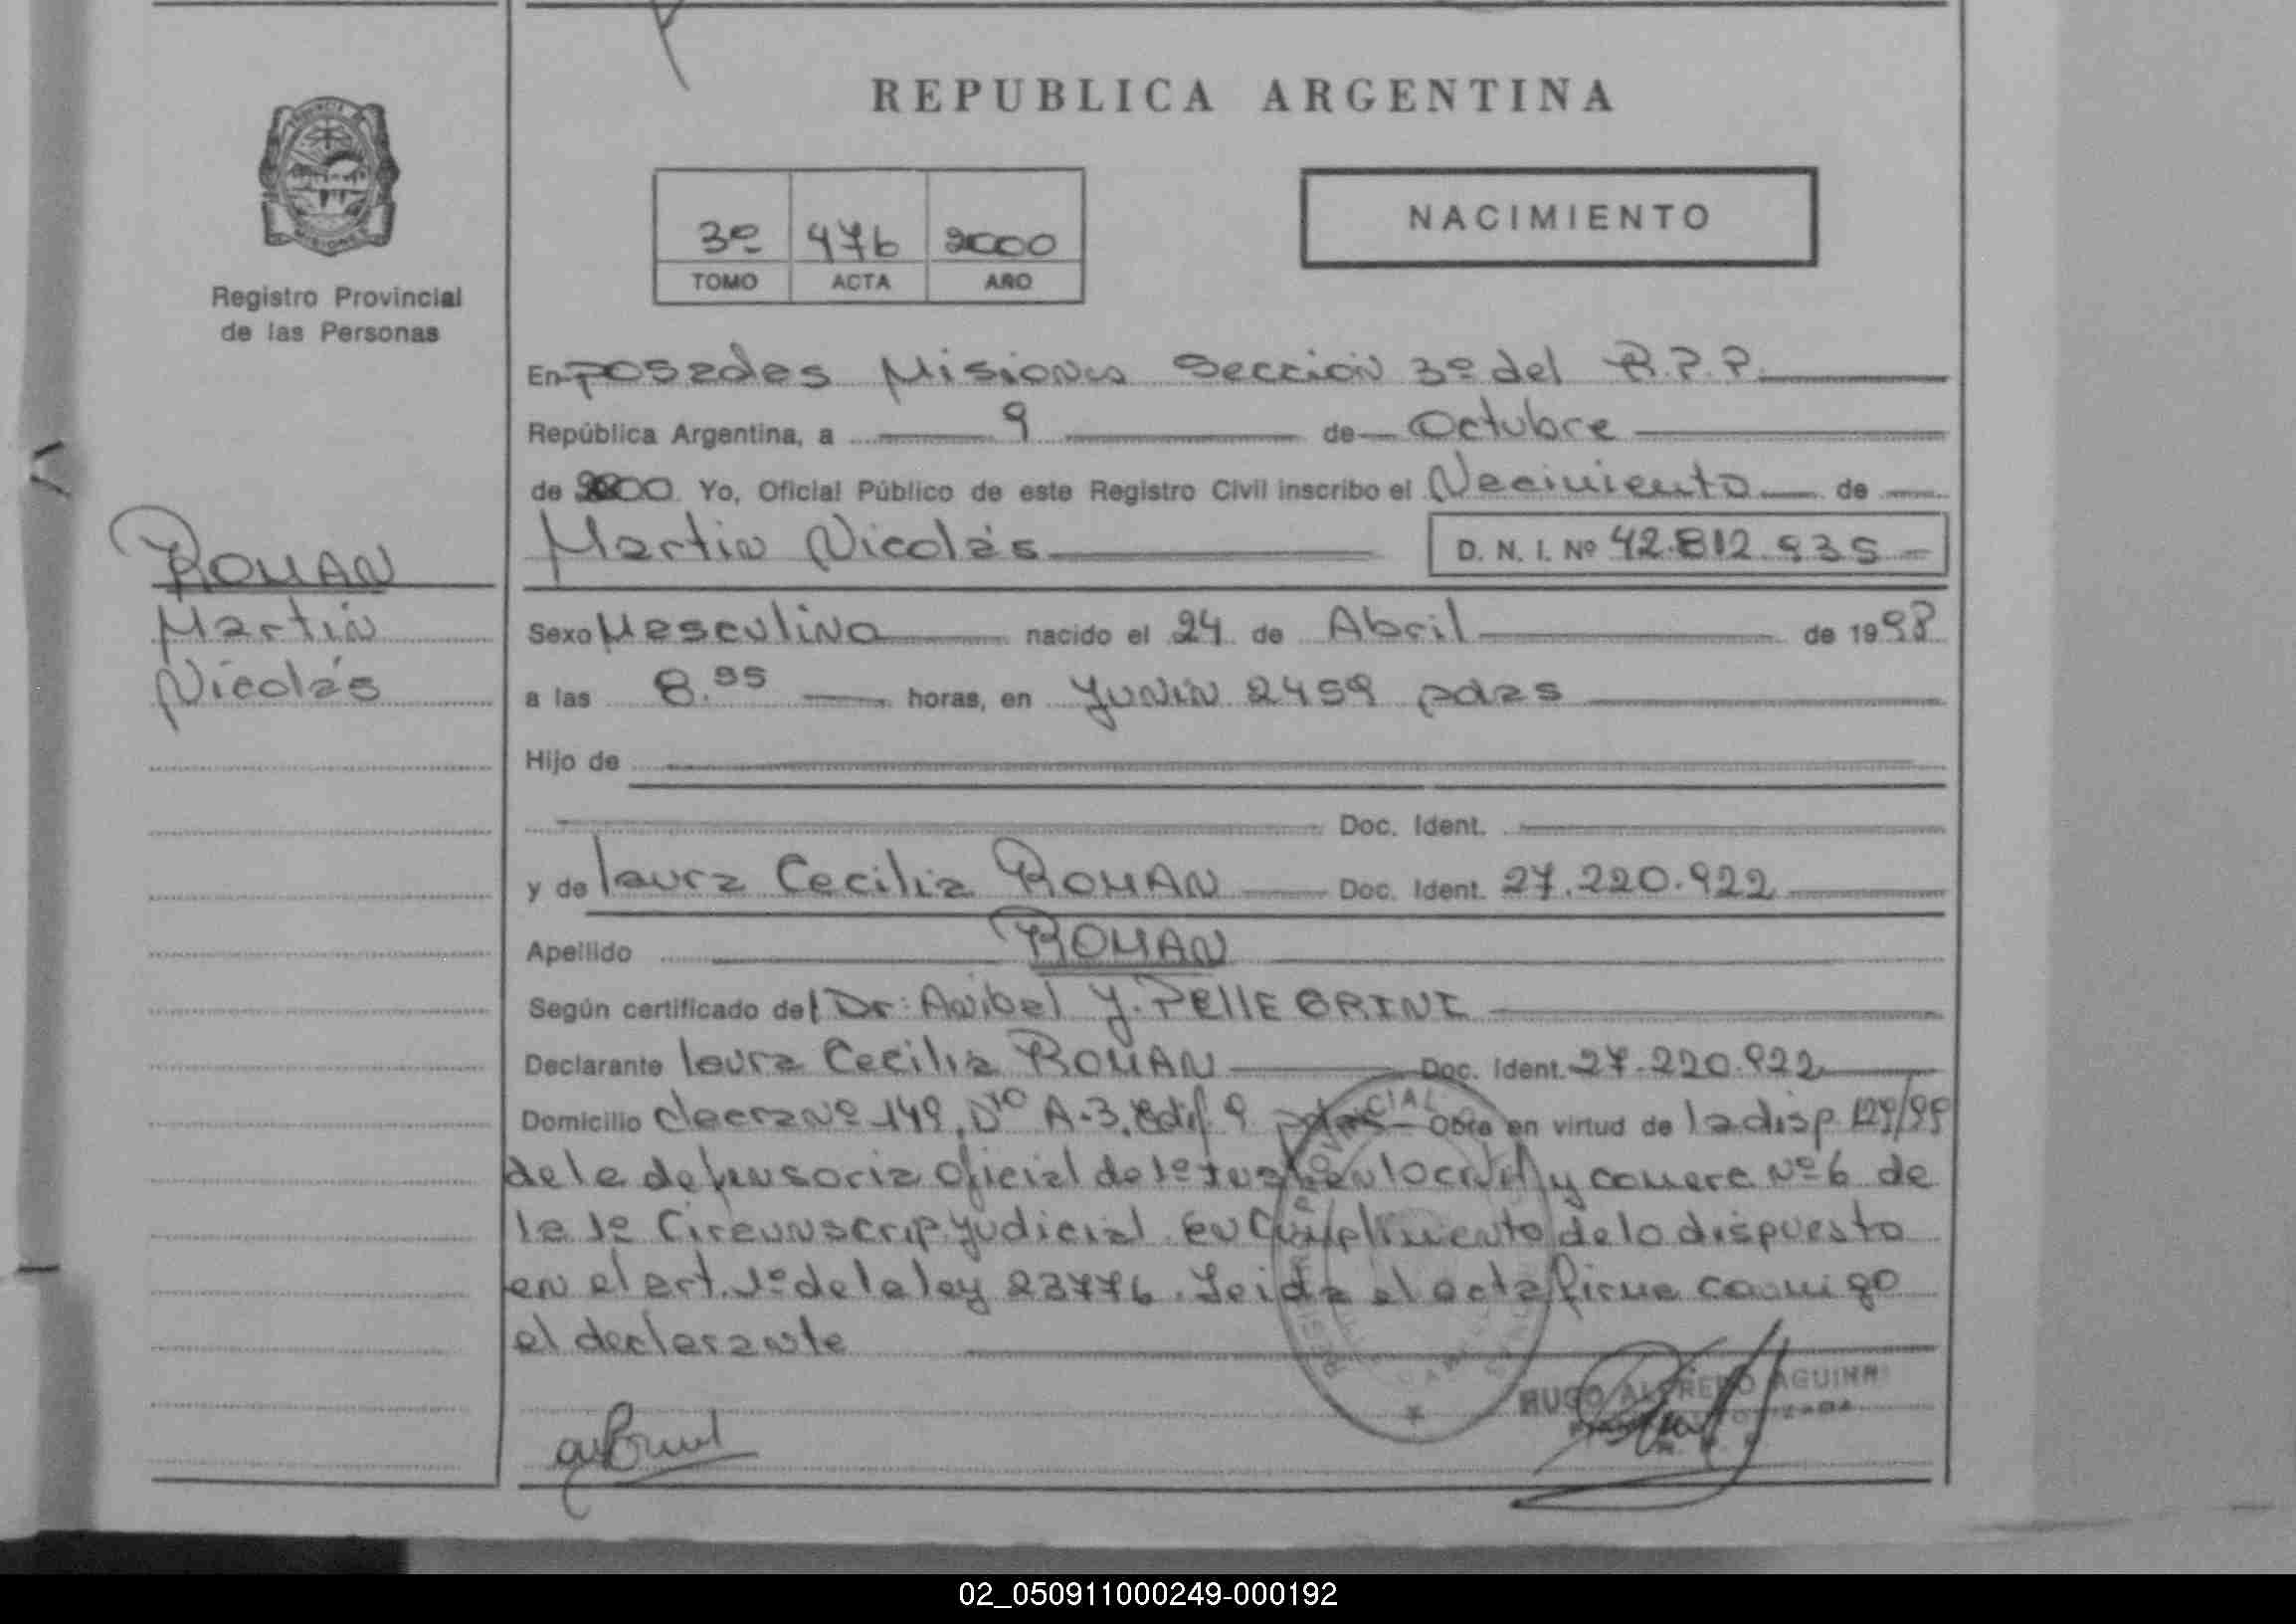 REPUBLICA ARGENTINA
PROVINCIA DE
MISIONES
Registro Provincial
de las Personas
3º 476 2000
TOMO ACTA AÑO
NACIMIENTO
En posadas Misiones Sección 3º del R.P.P.
República Argentina, a 9 de Octubre
de 2000 Yo, Oficial Público de este Registro Civil inscribo el Nacimiento de
Martin Nicolás D. N. I. Nº 42.812.935
ROMAN
Martin
Nicolás
Sexo Masculino nacido el 24 de Abril de 1998
a las 8.55 horas, en Junin 2459 pdas
Hijo de
Doc. Ident.
y de laura Cecilia ROMAN Doc. Ident. 27.220.922
Apellido ROMAN
Según certificado del Dr: Anibal J. PEllEGRINI
Declarante laura Cecilia ROMAN Doc. Ident. 27.220.922
Domicilio chacra Nº 149, Dto A-3, Edif 9 pdas Obra en virtud de la disp 129/99
de la defensoria oficial de 1º en lo civil y comerc Nº 6 de
la 1º Circunscrip. judicial en Cumplimiento de lo dispuesto
en el art. 1º de la ley 23776. Leida el acta firma conmigo
el declarante
HUGO ALFREDO
02_050911000249-000192